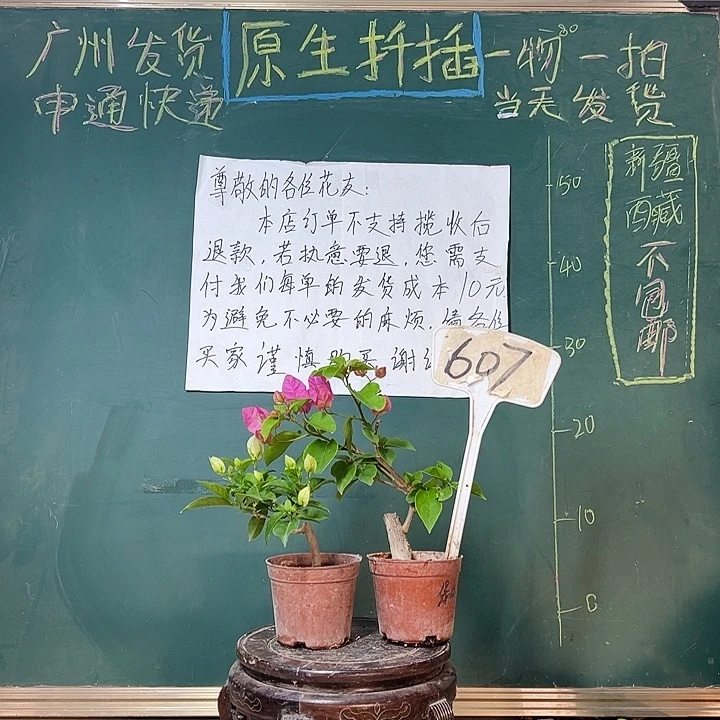 广州发货
申通快递
原生扦插
一物一拍
80
当天发货
尊敬的各位花友:
本店订单不支持揽收后
退款,若执意要退,您需支
付我们每单的发货成本10元.
为避免不必要的麻烦,请各位
买家谨慎购买 谢
607
50
40
30
20
10
0
新疆
西藏
不包邮